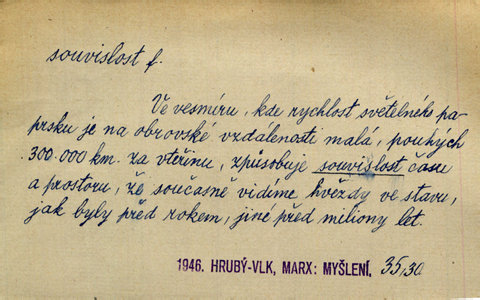 souvislost f.
Ve vesmíru, kde rychlost světelného pa-
prsku je na obrovské vzdálenosti malá, pouhých
300.000 km. za vteřinu, způsobuje souvislost času
a prostoru, že současně vidíme hvězdy ve stavu,
jak byly před rokem, jiné před miliony let.
1946. HRUBÝ-VLK, MARX: MYŠLENÍ. 35,30